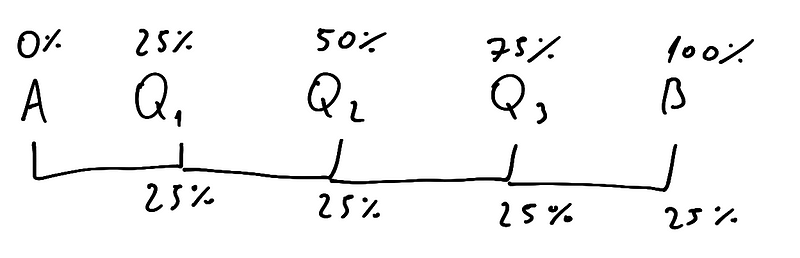 0% 25% 50% 75% 100%
A Q1 Q2 Q3 B
25% 25% 25% 25%